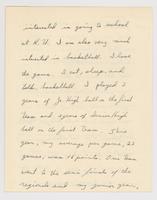 interested in going to school
at K.U. I am also very much
interested in basketball. I love
the game. I eat, sleep, and
talk basketball. I played 2
years of Jr. High ball on the first
team and 2 years of Senior High
ball on the first team. This
year, my average per game, 22
games, was 18 points. Our team
went to the semi finals of the
regionals and my junior year,